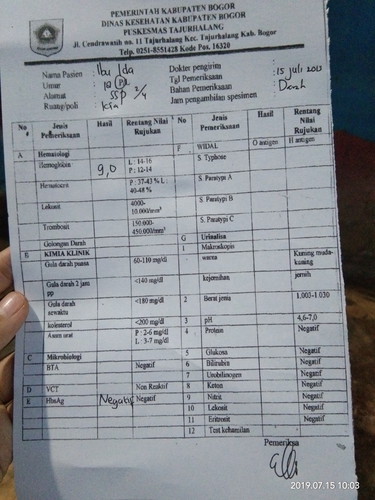 PEMERINTAH KABUPATEN BOGOR
DINAS KESEHATAN KABUPATEN BOGOR
PUSKESMAS TAJURHALANG
Jl. Cendrawasih no. 11 Tajurhalang Kec. Tajurhalang Kab. Bogor
Telp. 0251-8551428 Kode Pos. 16320
Nama Pasien : Ibu Ida Dokter pengirim :
Umur : Tgl Pemeriksaan : 15 Juli
Alamat : Bahan Pemeriksaan : Darah
Ruang/poli : Kia Jam pengambilan spesimen
No Jenis Pemeriksaan Hasil Rentang Nilai Rujukan No Jenis Pemeriksaan Hasil Rentang Nilai Rujukan
A Hematologi F WIDAL O antigen H antigen
Hemoglobin 9,0 L : 14-16 P : 12-14 S. Typhose
Hematocrit P : 37-43 % L : 40-48 % S. Paratypi A
Lekosit 4000-10.000/mm³ S. Paratypi B
Trombosit 150.000-450.000/mm³ S. Paratypi C
Golongan Darah G Urinalisa
B KIMIA KLINIK 1 Makroskopis
Gula darah puasa 60-110 mg/dl warna Kuning muda-kuning
Gula darah 2 jam pp <140 mg/dl kejernihan jernih
Gula darah sewaktu <180 mg/dl 2 Berat jenis 1.003-1.030
kolesterol <200 mg/dl 3 pH 4,6-7,0
Asam urat P : 2-6 mg/dl L : 3-7 mg/dl 4 Protein Negatif
C Mikrobiologi 5 Glukosa Negatif
BTA Negatif 6 Bilirubin Negatif
7 Urobilinogen Negatif
D VCT Non Reaktif 8 Keton Negatif
E HbsAg Negatif Negatif 9 Nitrit Negatif
10 Lekosit Negatif
11 Eritrosit Negatif
12 Test kehamilan
Pemeriksa
2019.07.15 10:03